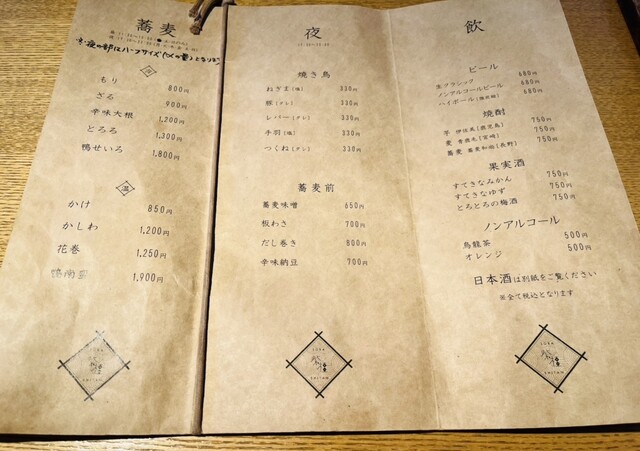 蕎麦
冷
もり 800円
ざる 900円
辛味大根 1,200円
とろろ 1,300円
鴨せいろ 1,800円
温
かけ 850円
かしわ 1,200円
花巻 1,250円
鴨南蛮 1,900円
夜
焼き鳥
ねぎま(塩) 330円
豚(タレ) 330円
レバー(タレ) 330円
手羽(塩) 330円
つくね(タレ) 330円
蕎麦前
蕎麦味噌 650円
板わさ 700円
だし巻き 800円
辛味納豆 700円
飲
ビール
生 680円
ノンアルコールビール 680円
ハイボール 680円
焼酎
芋 (鹿児島) 750円
麦 (宮崎) 750円
蕎麦 (長野) 750円
果実酒
すてきなみかん 750円
すてきなゆず 750円
とろとろの梅酒 750円
ノンアルコール
烏龍茶 500円
オレンジ 500円
日本酒は別紙をご覧ください
※全て税込となります